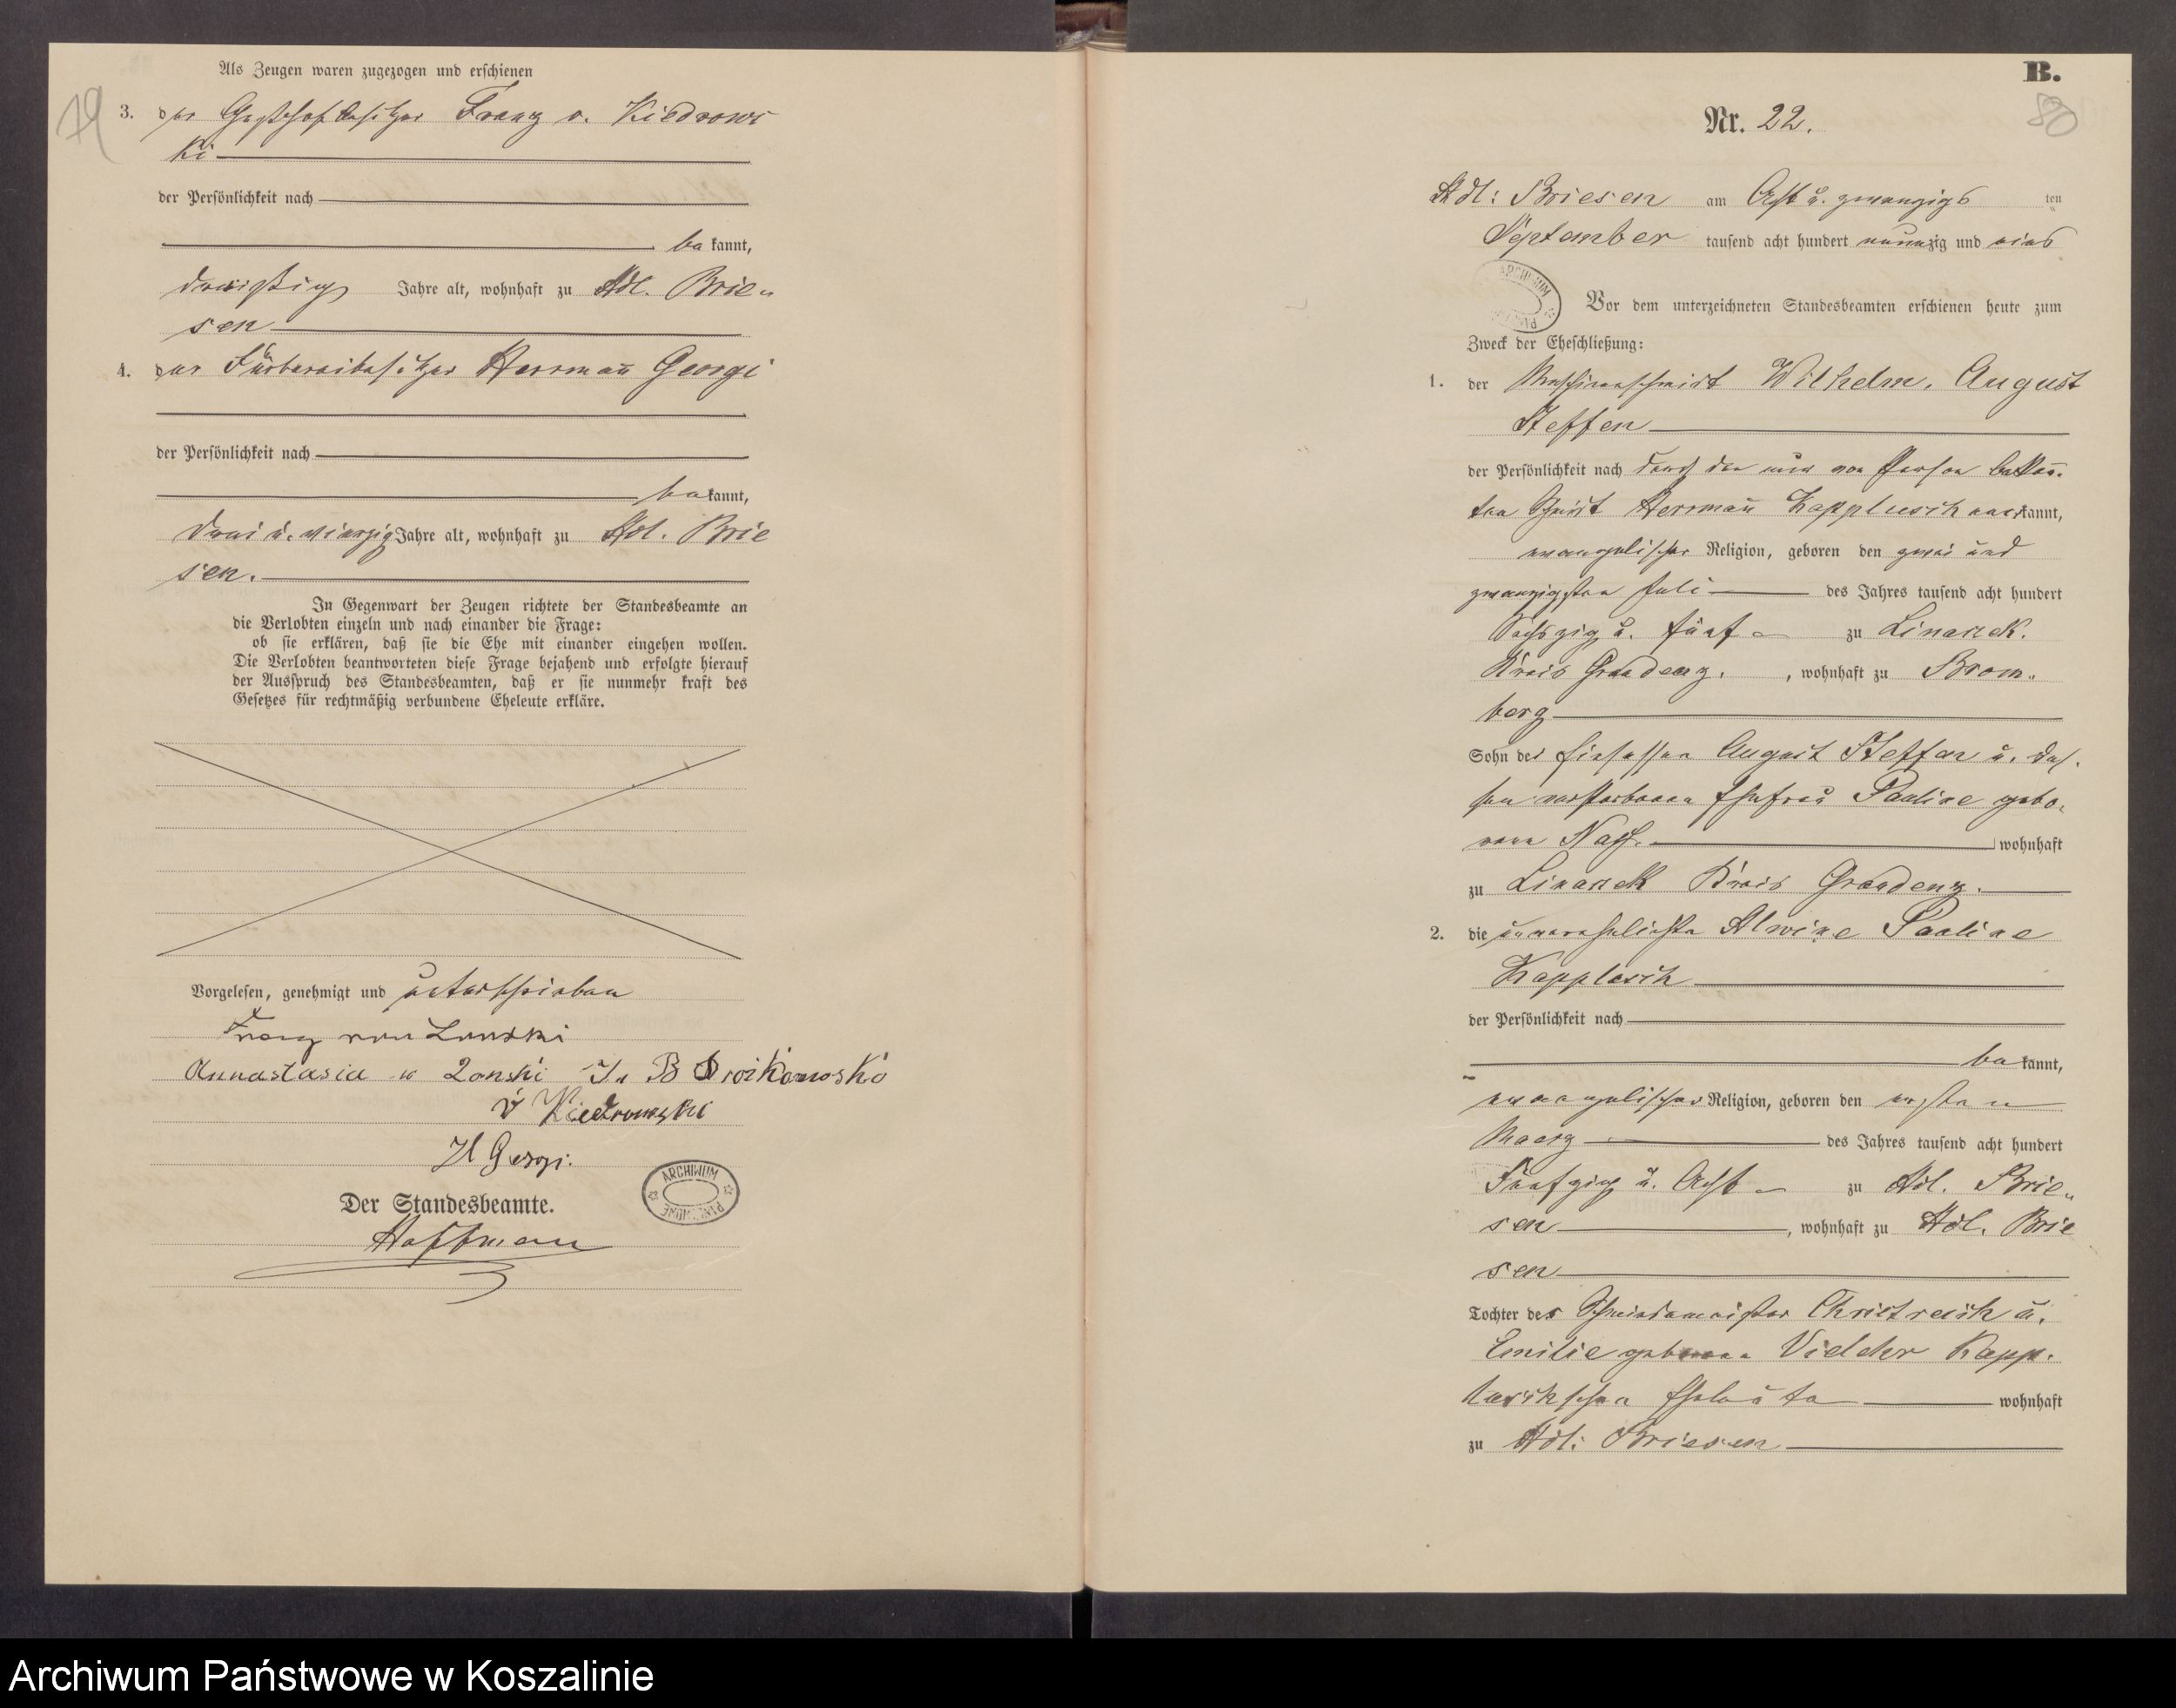 79
Als Zeugen waren zugezogen und erschienen
3. der Gasthofbesitzer Franz v. Kiedrows
ki
der Persönlichkeit nach
be kannt,
dreißig Jahre alt, wohnhaft zu Adl. Brie-
sen
4. der Färbereibesitzer Herrmañ Georgi
der Persönlichkeit nach
be kannt,
drei u. vierzig Jahre alt, wohnhaft zu Adl. Brie
sen.
In Gegenwart der Zeugen richtete der Standesbeamte an
die Verlobten einzeln und nach einander die Frage:
ob sie erklären, daß sie die Ehe mit einander eingehen wollen.
Die Verlobten beantworteten diese Frage bejahend und erfolgte hierauf
der Ausspruch des Standesbeamten, daß er sie nunmehr kraft des
Gesetzes für rechtmäßig verbundene Eheleute erkläre.
Vorgelesen, genehmigt und unterschrieben
Franz von Lonski
Annastasia v Lonski
v Kiedrowski
H Georgi.
ARCHIWUM
Der Standesbeamte.
Hoffmann
B.
80
Nr. 22.
Adl: Briesen am Acht u. zwanzigs ten
September tausend acht hundert neunzig und eins
ARCHIWUM
Vor dem unterzeichneten Standesbeamten erschienen heute zum
Zweck der Eheschließung:
1. der Maschinenschmidt Wilhelm, August
Steffen
der Persönlichkeit nach durch den von Person bekañ-
ten Schmidt Herrmañ Kapplusch anerkannt,
evangelischer Religion, geboren den zwei und
zwanzigsten Juli des Jahres tausend acht hundert
Sechszig u. fünf zu Linarzek.
Kreis Graudenz. , wohnhaft zu Brom-
berg
Sohn des Einsassen August Steffen u. des-
sen verstorbenen Ehefrau Pauline gebo-
rene wohnhaft
zu Linarzek Kreis Graudenz.
2. die unverehelichte Alwine Pauline
Kapplusch
der Persönlichkeit nach
be kannt,
evangelischer Religion, geboren den ersten
Maerz des Jahres tausend acht hundert
Fünfzig u. Acht zu Adl. Brie-
sen , wohnhaft zu Adl. Brie
sen
Tochter des Schmiedemeister Christreich u.
Emilie geborenen Kapp-
luschschen Eheleute wohnhaft
zu Adl: Briesen
Archiwum Państwowe w Koszalinie